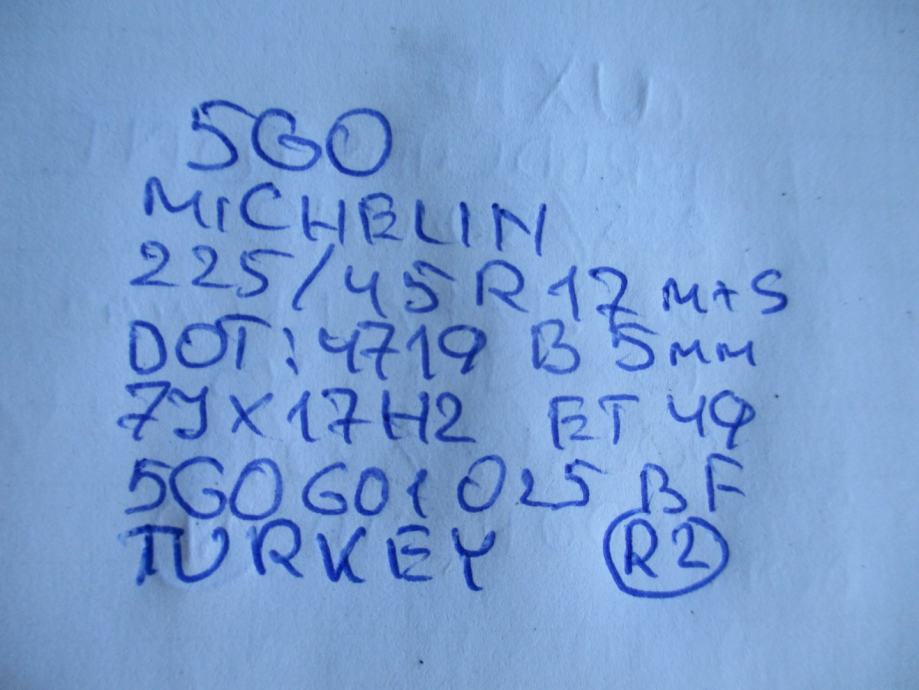 5G0
MICHELIN
225/45 R 17 M+S
DOT: 4719 B 5mm
7J X 17 H2 ET 49
5G0 601 025 BF
TURKEY R2